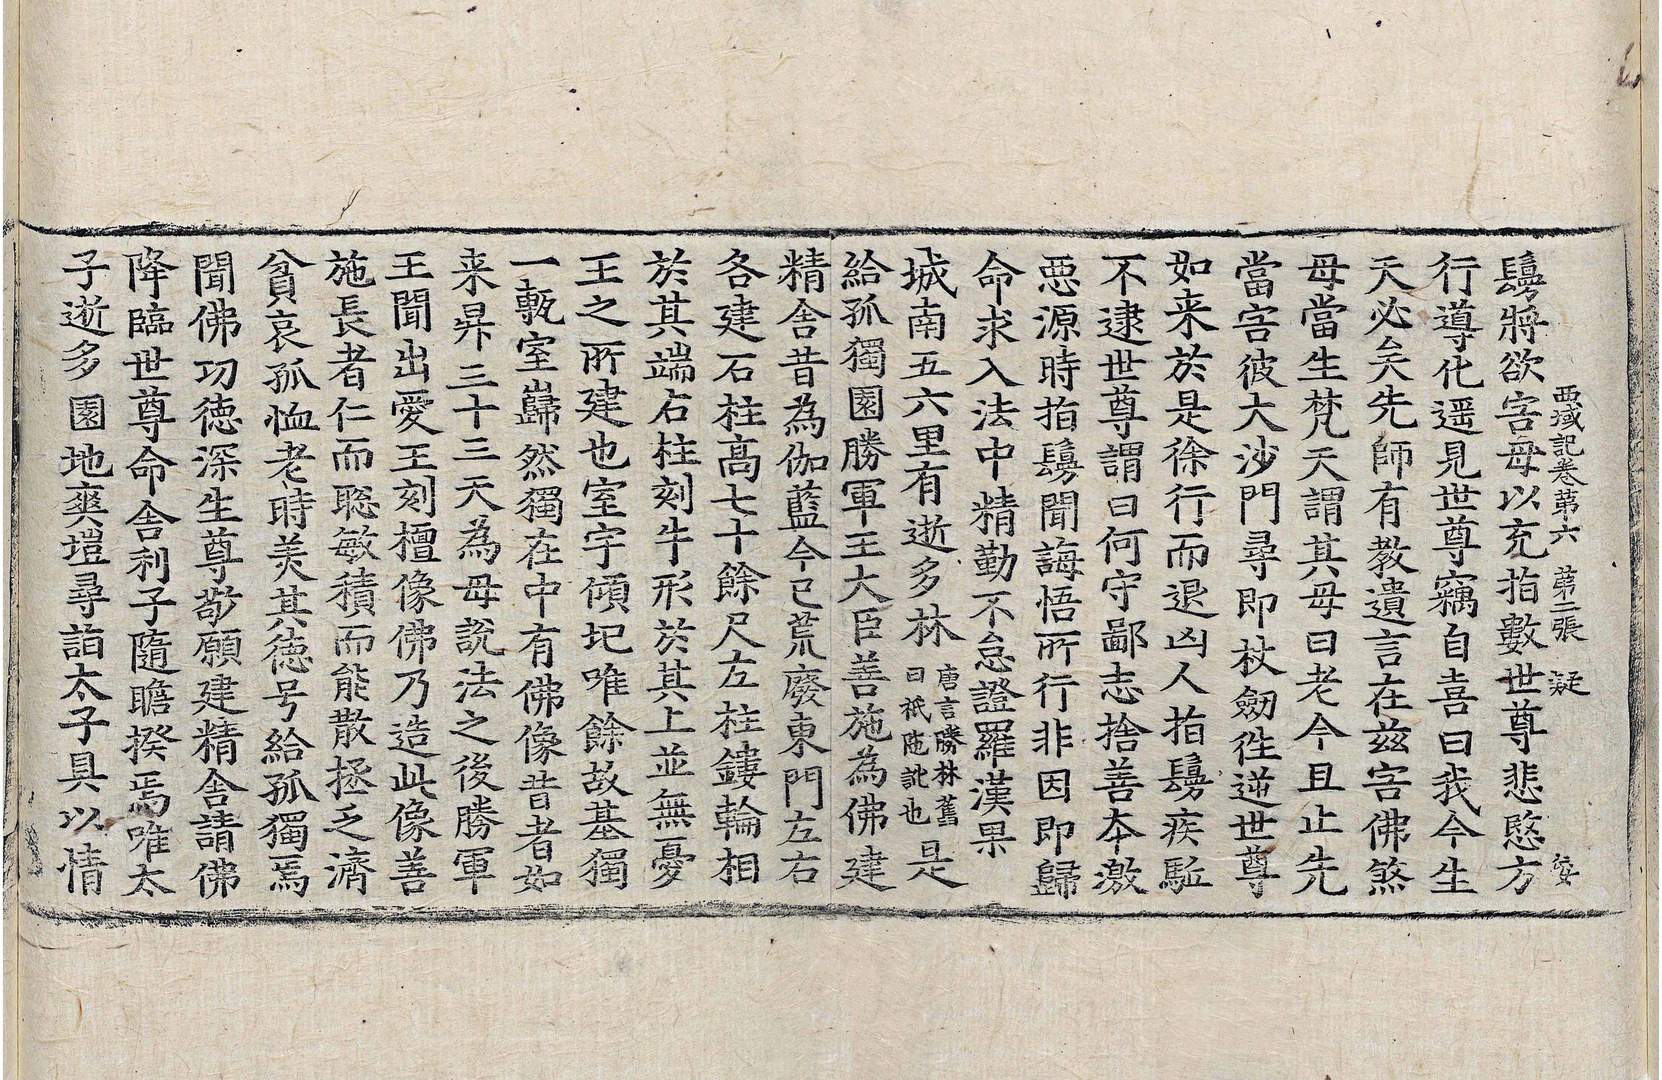 西域記卷第六　第二張　疑
鬘將欲害母以充指數世尊悲愍方
行導化遥見世尊竊自喜曰我今生
天必矣先師有教遺言在兹害佛煞
母當生梵天謂其母曰老今且止先
當害彼大沙門尋即杖劒徃逆世尊
如来於是徐行而退凶人指鬘疾駈
不逮世尊謂曰何守鄙志捨善夲激
惡源時指鬘聞誨悟所行非因即歸
命求入法中精勤不怠證羅漢果
城南五六里有逝多林唐言勝林舊曰祇陁訛也是
給孤獨園勝軍王大臣善施為佛建
精舍昔為伽藍今已荒廢東門左右
各建石柱高七十餘尺左柱鏤輪相
於其端右柱刻牛形於其上並無憂
王之所建也室宇傾圮唯餘故基獨
一甎室巋然獨在中有佛像昔者如
来昇三十三天為母說法之後勝軍
王聞出愛王刻檀像佛乃造此像善
施長者仁而聡敏積而能散拯乏濟
貧哀孤恤老時美其徳号給孤獨焉
聞佛功徳深生尊敬願建精舍請佛
降臨世尊命舎利子隨瞻揆焉唯太
子逝多園地爽塏尋詣太子具以情